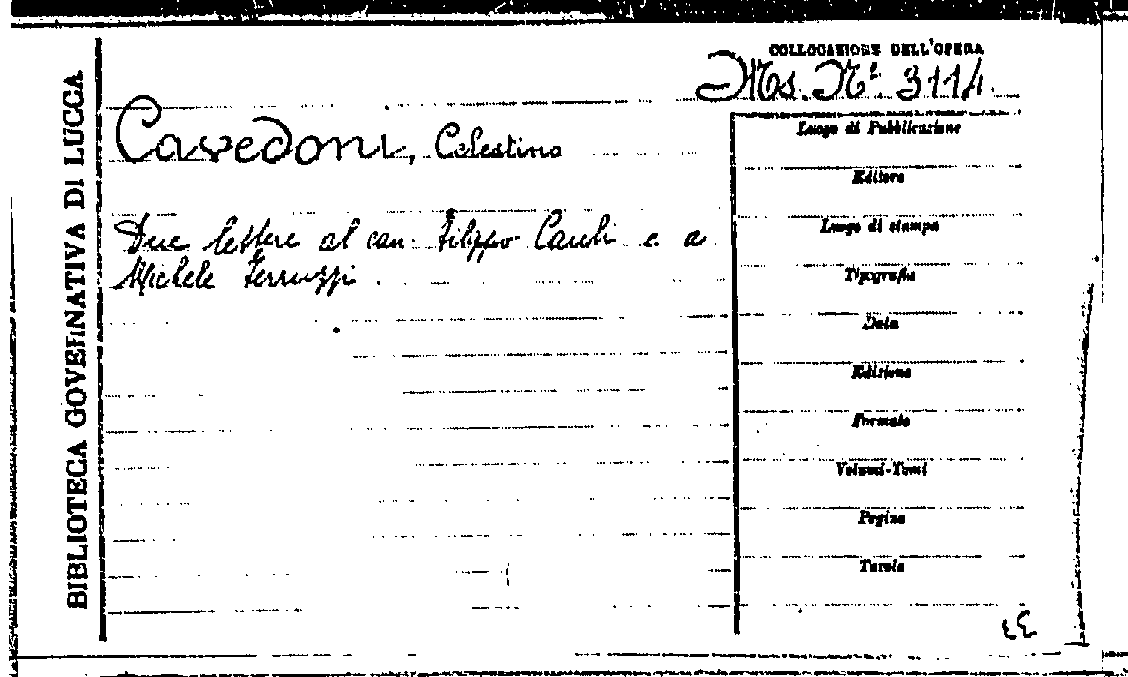 BIBLIOTECA GOVERNATIVA DI LUCCA
COLLOCAZIONE DELL'OPERA
Ms. N° 3114
Cavedoni, Celestino
Due lettere al can. Filippo e a
Michele Ferruzzi.
Luogo di Pubblicazione
Editore
Luogo di stampa
Tipografia
Data
Edizione
Formato
Volumi-Tomi
Pagine
Tavole